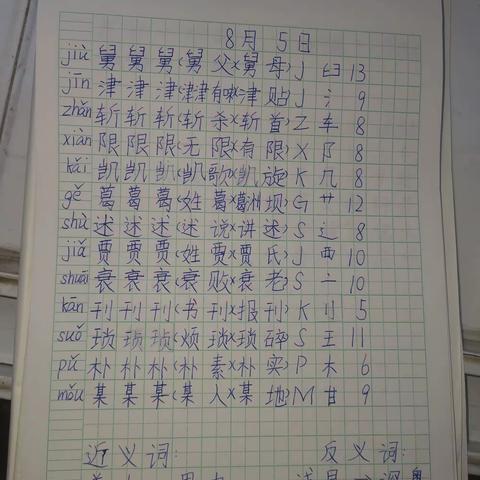 8月 5日
jiù 舅 舅 舅(舅 父×舅 母) J 臼 13
jīn 津 津 津(津津有味×津 贴) J 氵 9
zhǎn 斩 斩 斩(斩 杀×斩 首) Z 车 8
xiàn 限 限 限(无 限×有 限) X 阝 8
kǎi 凯 凯 凯(凯 歌×凯 旋) K 几 8
gě 葛 葛 葛(姓 葛×葛洲 坝) G 艹 12
shù 述 述 述(述 说×讲 述) S 辶 8
jiǎ 贾 贾 贾(姓 贾×贾 氏) J 覀 10
shuāi 衰 衰 衰(衰 败×衰 老) S 亠 10
kān 刊 刊 刊(书 刊×报 刊) K 刂 5
suǒ 琐 琐 琐(烦 琐×琐 碎) S 王 11
pǔ 朴 朴 朴(朴 素×朴 实) P 木 6
mǒu 某 某 某(某 人×某 地) M 甘 9
近 义 词： 反 义 词：